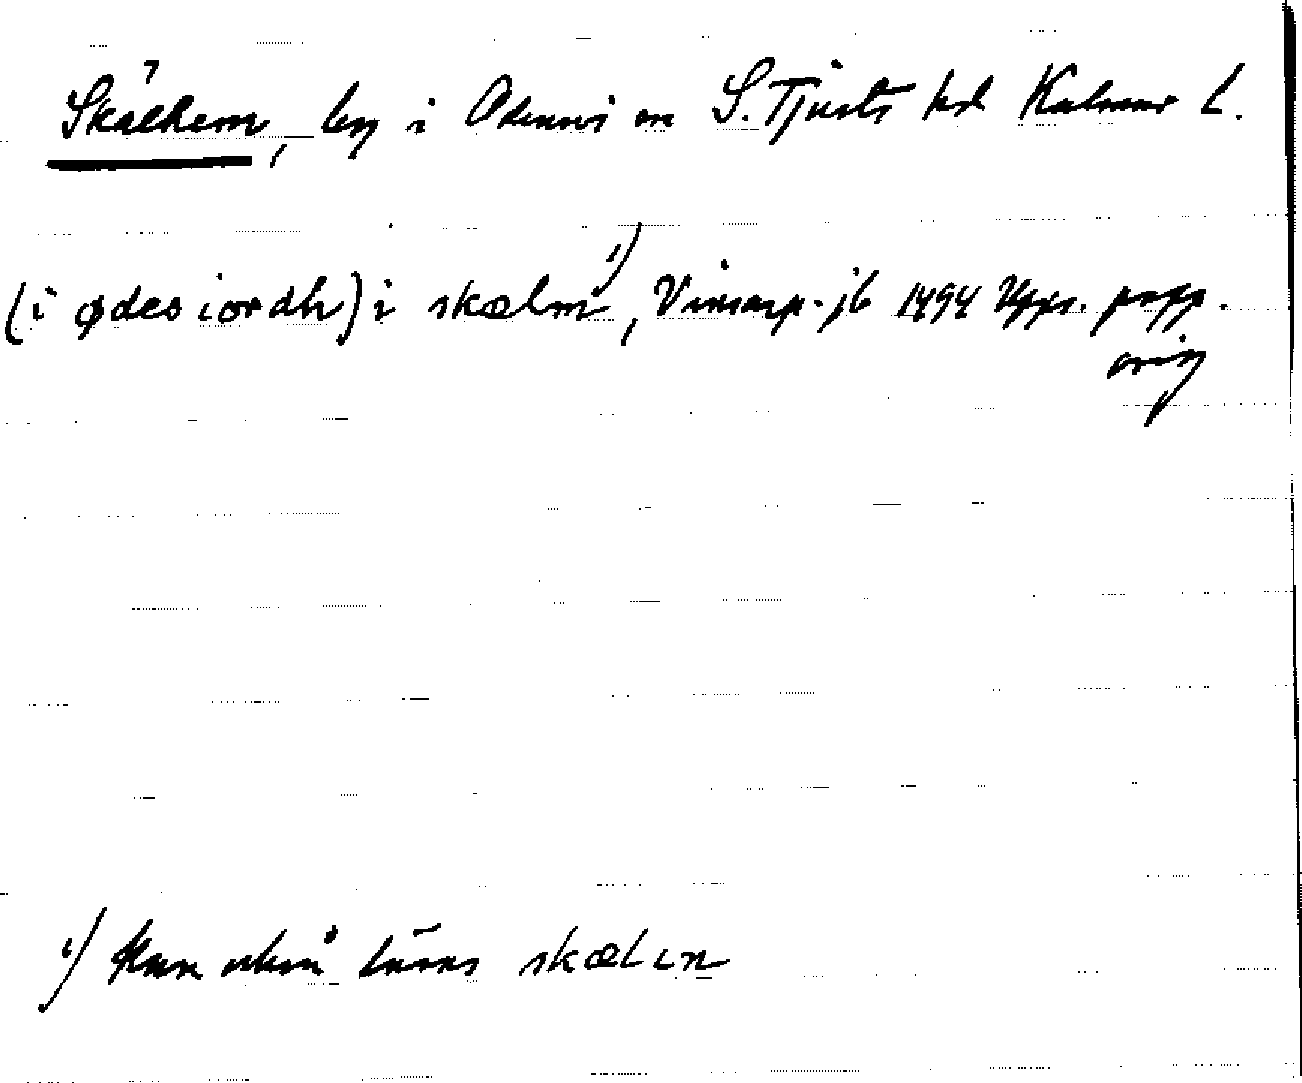 Skälhem, by i Odensvi sn S. Tjusts hd Kalmar L.
(i ødes iordh) i skælm ¹⁾, Vinsarp-jb 1494 Upps. papp.
orig
¹⁾ Kan också läsas skælin